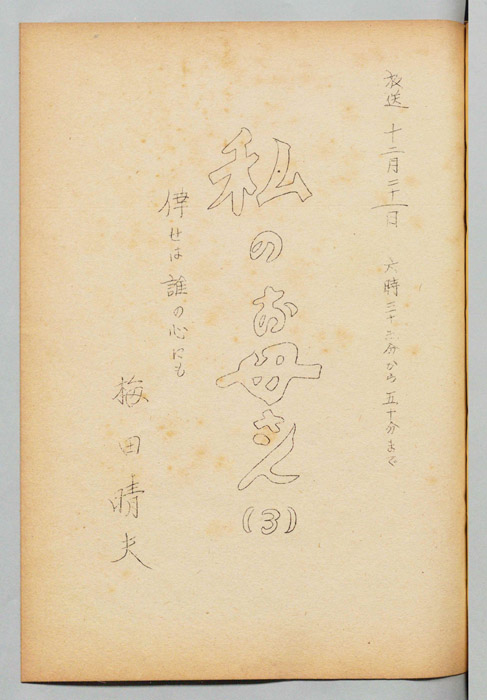 放送 十二月二十一日 六時三十二分から 五十分まで
私のお母さん(3)
倖せは誰の心にも
梅田晴夫